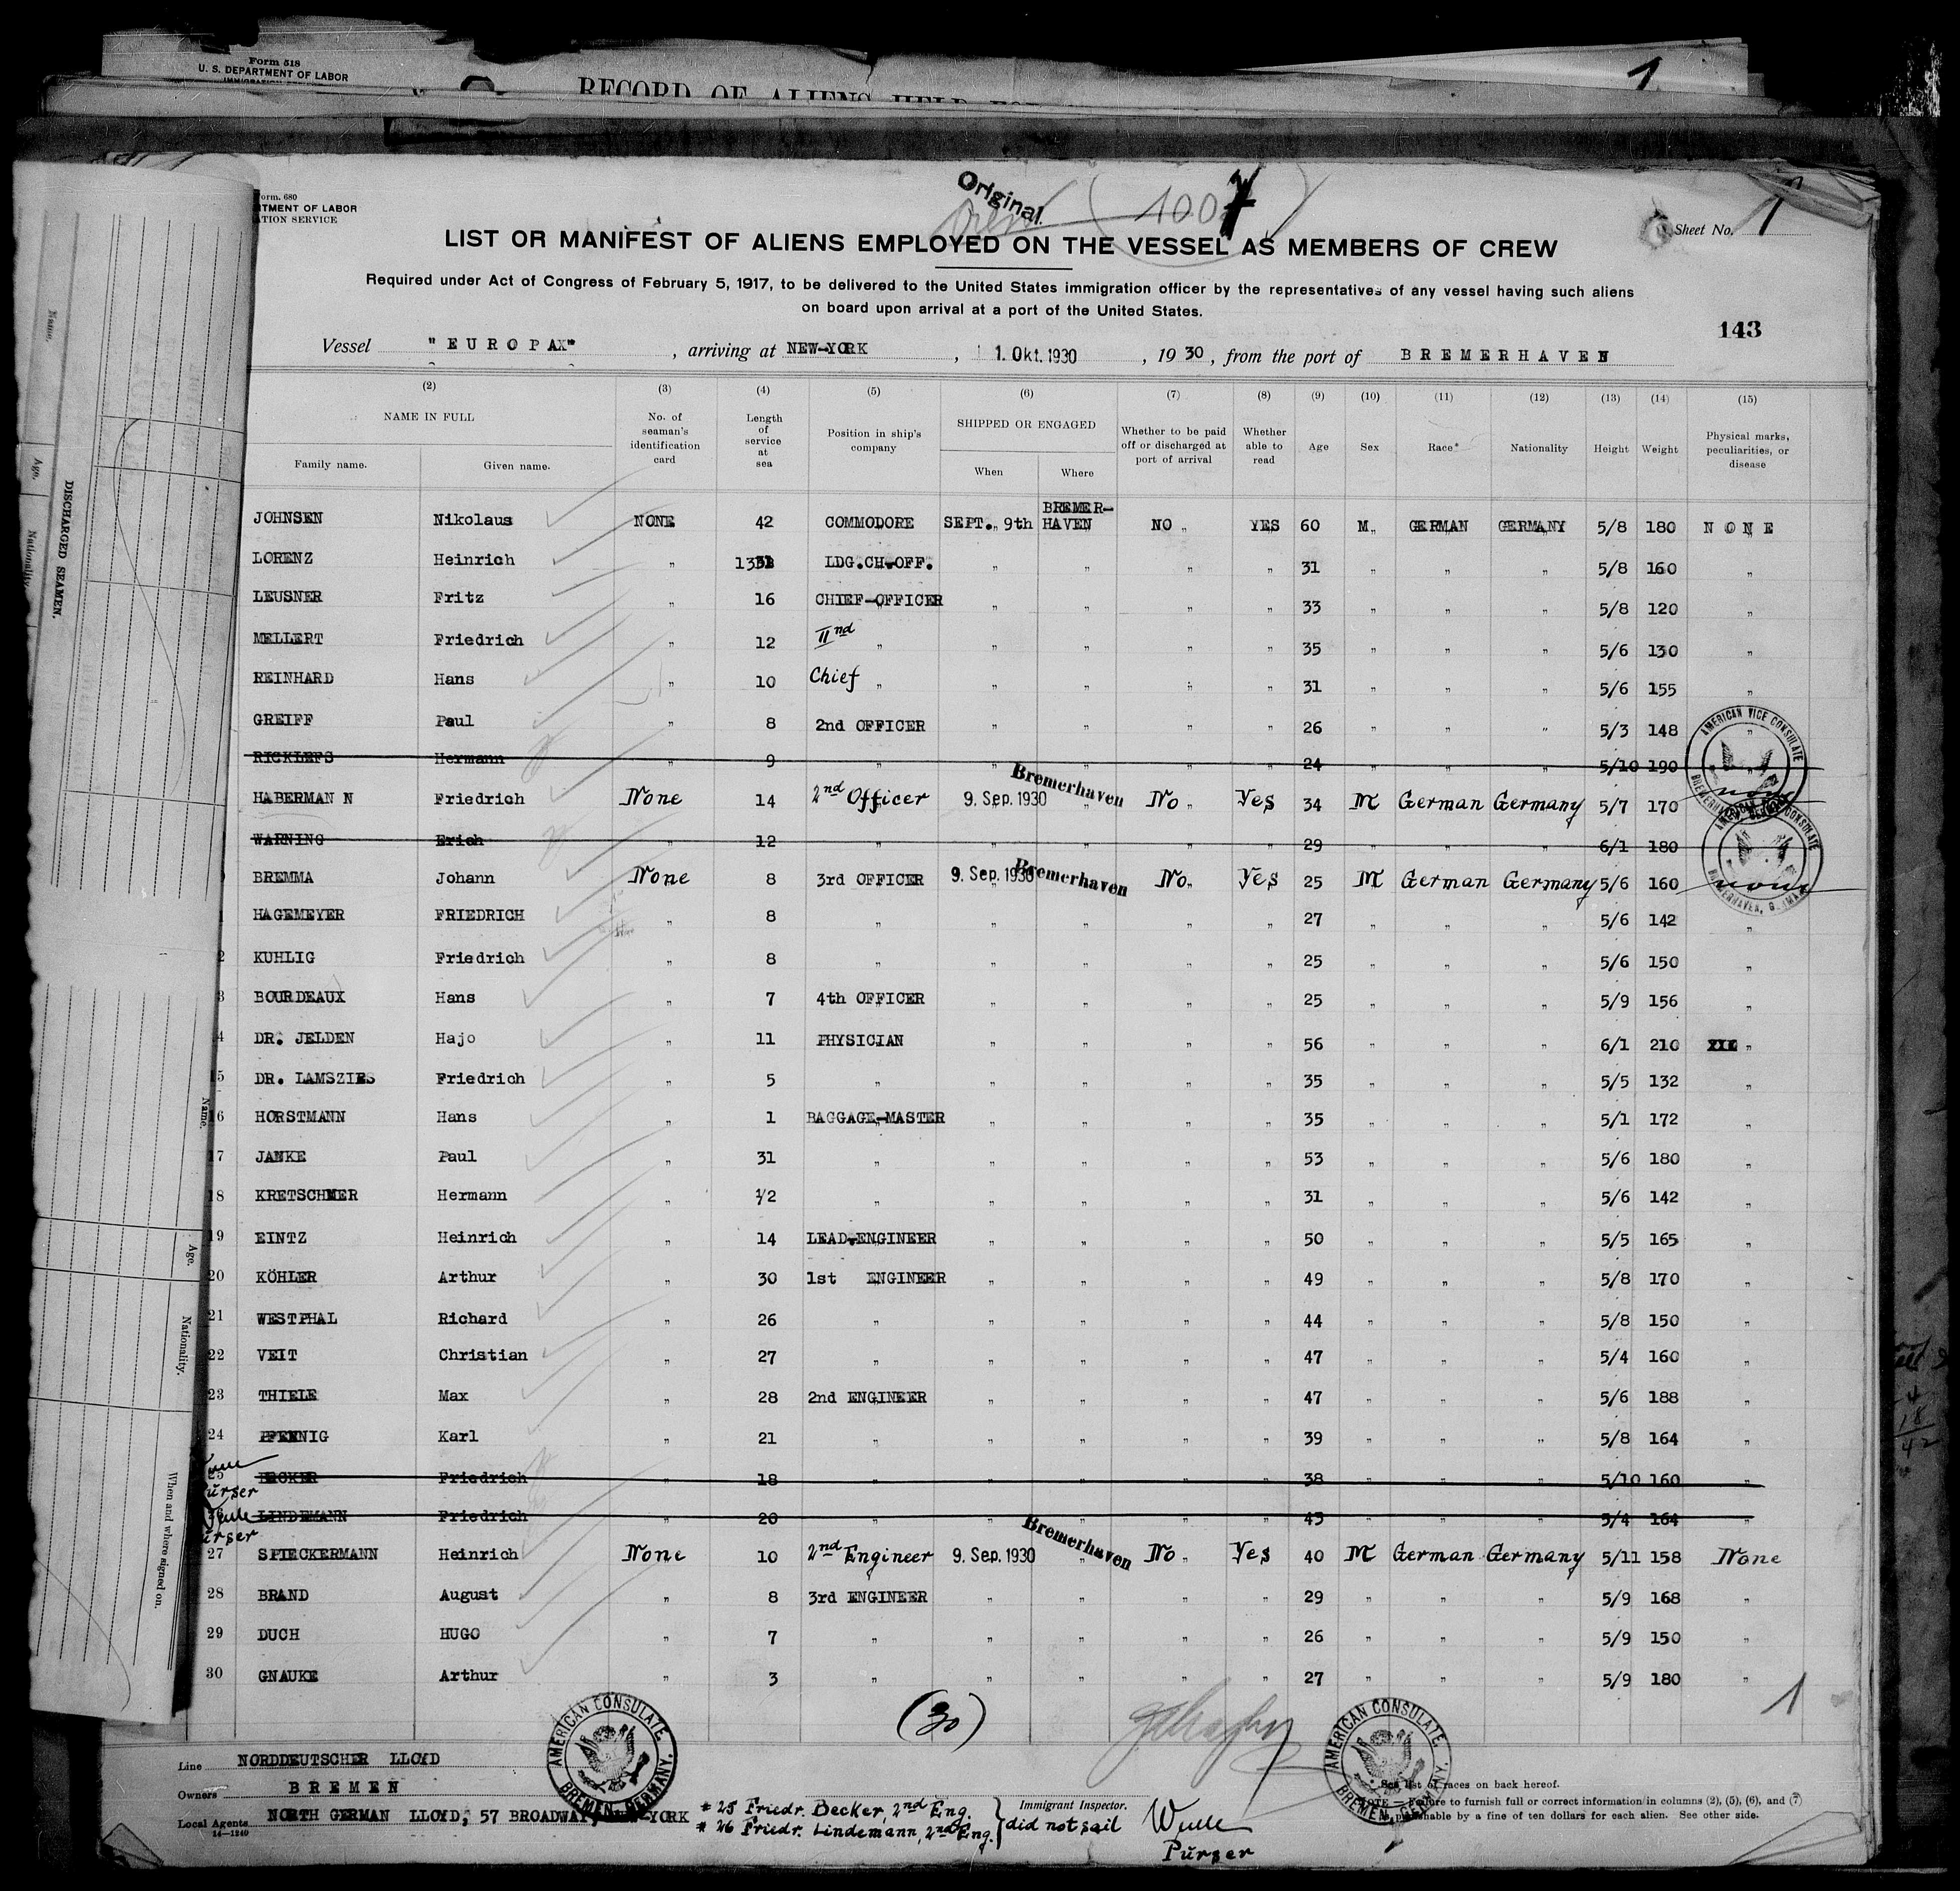 Form 518
U. S. DEPARTMENT OF LABOR
RECORD OF ALIENS HELD
1
Form. 680
RTMENT OF LABOR
ATION SERVICE
Original
(1007)
Sheet No. 1
LIST OR MANIFEST OF ALIENS EMPLOYED ON THE VESSEL AS MEMBERS OF CREW
Required under Act of Congress of February 5, 1917, to be delivered to the United States immigration officer by the representatives of any vessel having such aliens
on board upon arrival at a port of the United States.
143
Vessel "EUROPA" , arriving at NEW-YORK , 1. Okt. 1930 , 19 30 , from the port of BREMERHAVEN
(2) (3) (4) (5) (6) (7) (8) (9) (10) (11) (12) (13) (14) (15)
NAME IN FULL
Family name. Given name.
No. of seaman's identification card
Length of service at sea
Position in ship's company
SHIPPED OR ENGAGED
When Where
Whether to be paid off or discharged at port of arrival
Whether able to read
Age Sex Race* Nationality Height Weight
Physical marks, peculiarities, or disease
JOHNSEN Nikolaus NONE 42 COMMODORE SEPT. 9th BREMER-HAVEN NO YES 60 M. GERMAN GERMANY 5/8 180 NONE
LORENZ Heinrich " LDG.CH.OFF. " " " " 31 " " " 5/8 160 "
LEUSNER Fritz " 16 CHIEF-OFFICER " " " " 33 " " " 5/8 120 "
MELLERT Friedrich " 12 IInd " " " " " 35 " " " 5/6 130 "
REINHARD Hans " 10 Chief " " " " " 31 " " " 5/6 155 "
GREIFF Paul " 8 2nd OFFICER " " " " 26 " " " 5/3 148 "
RICKLEFS Hermann " 9 " " " " " 24 " " " 5/10 190 "
HABERMANN Friedrich None 14 2nd Officer 9. Sep. 1930 Bremerhaven No Yes 34 M German Germany 5/7 170 none
WARNING Erich " 12 " " " " " 29 " " " 6/1 180
BREMMA Johann None 8 3rd OFFICER 9. Sep. 1930 Bremerhaven No Yes 25 M German Germany 5/6 160 none
HAGEMEYER FRIEDRICH " 8 " " " " " 27 " " " 5/6 142 "
2 KUHLIG Friedrich " 8 " " " " " 25 " " " 5/6 150 "
3 BOURDEAUX Hans " 7 4th OFFICER " " " " 25 " " " 5/9 156 "
4 DR. JELDEN Hajo " 11 PHYSICIAN " " " " 56 " " " 6/1 210 "
15 DR. LAMSZIES Friedrich " 5 " " " " " 35 " " " 5/5 132 "
16 HORSTMANN Hans " 1 BAGGAGE-MASTER " " " " 35 " " " 5/1 172 "
17 JANKE Paul " 31 " " " " " 53 " " " 5/6 180 "
18 KRETSCHMER Hermann " 1/2 " " " " " 31 " " " 5/6 142 "
19 EINTZ Heinrich " 14 LEAD.ENGINEER " " " " 50 " " " 5/5 165 "
20 KÖHLER Arthur " 30 1st ENGINEER " " " " 49 " " " 5/8 170 "
21 WESTPHAL Richard " 26 " " " " " 44 " " " 5/8 150 "
22 VEIT Christian " 27 " " " " " 47 " " " 5/4 160 "
23 THIELE Max " 28 2nd ENGINEER " " " " 47 " " " 5/6 188 "
24 PFENNIG Karl " 21 " " " " " 39 " " " 5/8 164 "
25 BECKER Friedrich " 18 " " " " " 38 " " " 5/10 160 "
Purser
26 LINDEMANN Friedrich " 20 " " " " " 43 " " " 5/4 164 "
Purser
27 SPIECKERMANN Heinrich None 10 2nd Engineer 9. Sep. 1930 Bremerhaven No Yes 40 M German Germany 5/11 158 None
28 BRAND August " 8 3rd ENGINEER " " " " 29 " " " 5/9 168 "
29 DUCH HUGO " 7 " " " " " 26 " " " 5/9 150 "
30 GNAUKE Arthur " 3 " " " " " 27 " " " 5/9 180 "
(30)
1
AMERICAN VICE CONSULATE BREMERHAVEN, GERMANY
AMERICAN CONSULATE BREMERHAVEN, GERMANY
AMERICAN CONSULATE. BREMEN, GERMANY.
AMERICAN CONSULATE. BREMEN, GERMANY.
Line NORDDEUTSCHER LLOYD
Owners BREMEN
Local Agents NORTH GERMAN LLOYD, 57 BROADWAY, NEW-YORK
14-1240
# 25 Friedr. Becker, 2nd Eng.
# 26 Friedr. Lindemann, 2nd Eng. } did not sail
Immigrant Inspector.
Purser
* See list of races on back hereof.
NOTE.—Failure to furnish full or correct information in columns (2), (5), (6), and (7)
is punishable by a fine of ten dollars for each alien. See other side.
DISCHARGED SEAMEN.
Name. Age. Nationality.
Name. Age. Nationality. When and where signed on.